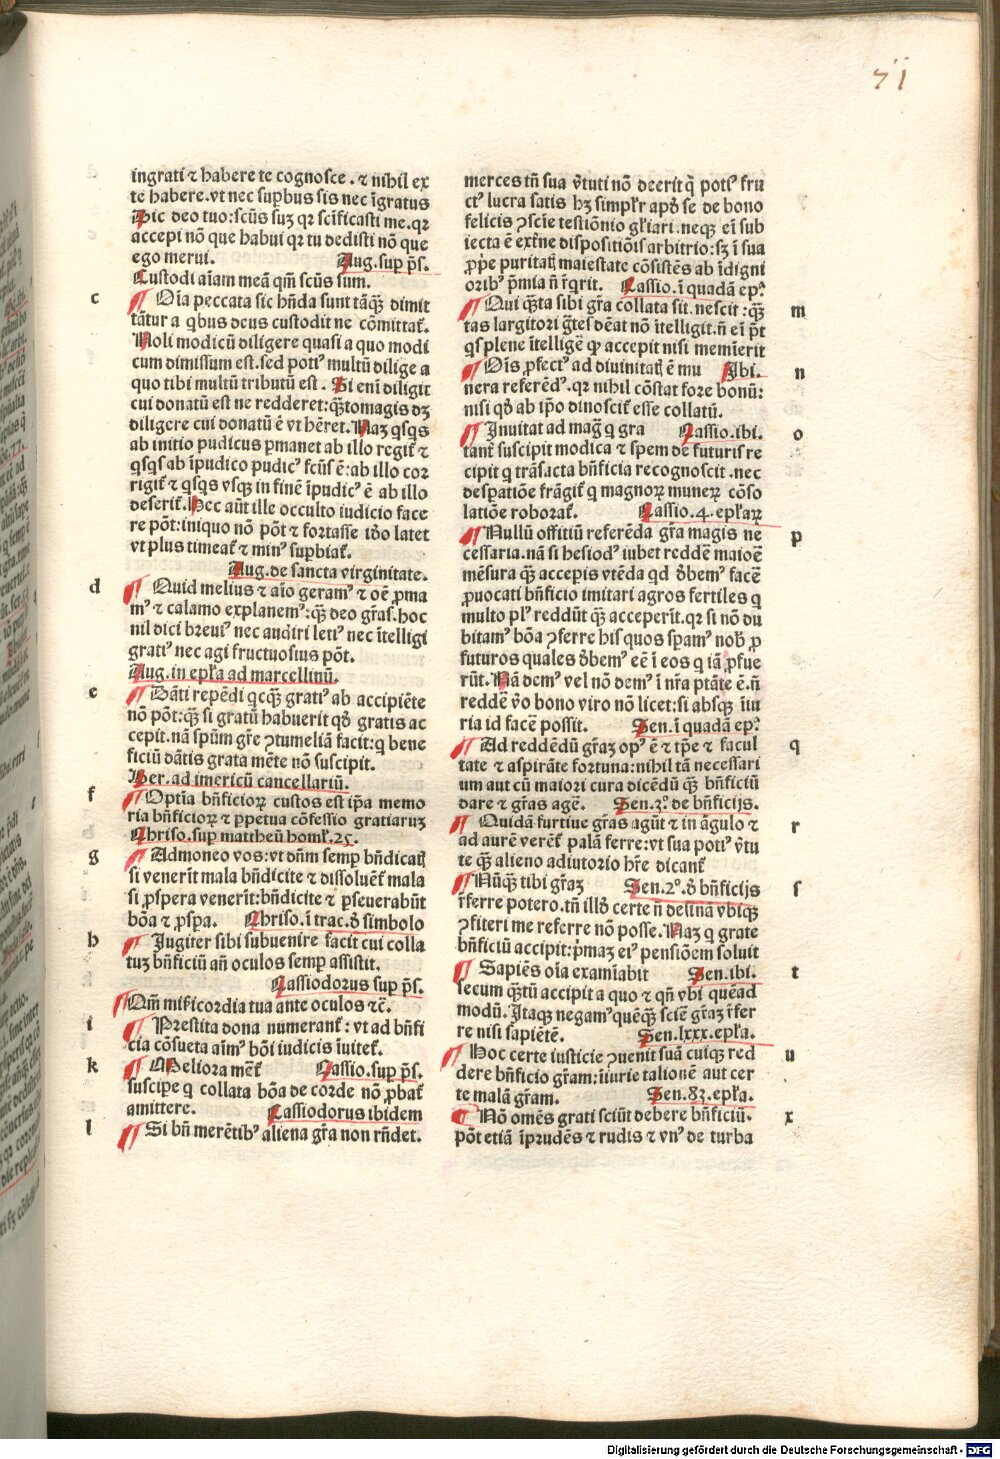 71
ingrati ⁊ habere te cognosce . ⁊ nihil ex
te habere.vt nec supbus sis nec īgratus
Dic deo tuo:scūs suꝫ qꝛ scīficasti me.qꝛ
accepi nō que habui qꝛ tu dedisti nō que
ego merui. Aug.sup ps̄.
Custodi aīam meā qm̄ scūs sum.
c ¶ Oīa peccata sic hn̄da sunt tāqꝫ dimit
tātur a qbus deus custodit ne cōmittat̄.
Noli modicū diligere quasi a quo modi
cum dimissum est.sed poti⁹ multū dilige a
quo tibi multū tributū est . Si enī diligit
cui donatū est ne redderet:qꝫtomagis dꝫ
diligere cui donatū ē vt hēret.Naꝫ qsqs
ab initio pudicus ꝑmanet ab illo regit̄ ⁊
qsqs ab īpudico pudic⁹ fcūs ē:ab illo cor
rigit̄ ⁊ qsqs vsqꝫ in finē īpudic⁹ ē ab illo
deserit̄.Hec aūt ille occulto iudicio face
re pōt:iniquo nō pōt ⁊ fortasse iđo latet
vt plus timeat̄ ⁊ min⁹ supbiat̄.
Aug.de sancta virginitate.
d ¶ Quid melius ⁊ aīo geram⁹ ⁊ oē ꝓma
m⁹ ⁊ calamo explanem⁹:qꝫ deo gr̄as.hoc
nil dici breui⁹ nec audiri leti⁹ nec ītelligi
grati⁹ nec agi fructuosius pōt.
Aug.in epl̄a ad marcellinū.
e ¶ Dāti repēdi qcqꝫ grati⁹ ab accipiēte
nō pōt:qꝫ si gratū habuerit qđ gratis ac
cepit.nā spūm gr̄e ꝯtumeliā facit:q bene
ficiū dātis grata mēte nō suscipit.
Ber.ad imericū cancellariū.
f ¶ Optīa bn̄ficioꝝ custos est ip̄a memo
ria bn̄ficioꝝ ⁊ ꝑpetua cōfessio gratiaruꝫ
Chriso.sup mattheū homl̄.25.
g ¶ Admoneo vos:vt dn̄m semꝑ bn̄dicatꝭ
si venerīt mala bn̄dicite ⁊ dissoluēt̄ mala
si ꝓspera venerīt:bn̄dicite ⁊ ꝑseuerabūt
bōa ⁊ ꝓspa. Chriso.ī trac.đ simbolo
h ¶ Jugiter sibi subuenire facit cui colla
tuꝫ bn̄ficiū an̄ oculos semꝑ assistit.
Cassiodorus sup ps̄.
¶ Qm̄ mīericordia tua ante oculos ⁊c̄.
i ¶ Prestita dona numerant̄: vt ad bn̄fi
cia cōsueta aīm⁹ bōi iudicis īuitet̄.
k ¶ Meliora mēt̄ Cassio.sup ps̄.
suscipe q collata bōa de corde nō ꝓbat̄
amittere. Cassiodorus ibidem
l ¶ Si bn̄ merētib⁹ aliena gr̄a non rn̄det.
merces tn̄ sua v̄tuti nō deerit q̄ poti⁹ fru
ct⁹ lucra satis hꝫ simpl̄r apđ se de bono
felicis ꝯsciē testiōnio gl̄iari.neqꝫ eī sub
iecta ē ext̄ne dispositiōis arbitrio:sꝫ ī sua
ꝓp̄e puritatꝭ maiestate cōsistēs ab īdigni
orib⁹ p̄mia n̄ r̄qrit. Cassio.ī quadā ep̄.
m ¶ Qui qꝫta sibi gr̄a collata sit nescit:qꝫ
tas largitori gr̄tes dēat nō ītelligit.n̄ ei p̄t
qs plene ītelligē ꝙ accepit nisi memīerit
n ¶ Oīs ꝓfect⁹ ad diuinitatꝭ ē mu Ibi.
nera referēđ.qꝛ nihil cōstat fore bonū:
nisi qđ ab ip̄o dinoscit̄ esse collatū.
o ¶ Inuitat ad maḡ q gra Cassio.ibi.
tant̄ suscipit modica ⁊ spem de futuris re
cipit q trāsacta bn̄ficia recognoscit .nec
despatiōe frāgit̄ q magnoꝝ muneꝝ cōso
latiōe roborat̄. Cassio.4.epl̄aꝝ
p ¶ Nullū offitiū referēda gr̄a magis ne
cessaria.nā si hesiod⁹ iubet reddē maioē
mēsura qꝫ accepis vtēda qd đbem⁹ facē
ꝓuocati bn̄ficio imitari agros fertiles q
multo pl⁹ reddūt qꝫ acceperīt.qꝛ si nō du
bitam⁹ bōa ꝯferre his quos spam⁹ nob̄ ꝓ
futuros quales đbem⁹ eē ī eos q iā ꝓfue
rūt.Nā dem⁹ vel nō dem⁹ ī nr̄a ptāte ē.n̄
reddē v̄o bono viro nō licet:si absqꝫ īiu
ria id facē possit. Sen.ī quadā ep̄.
q ¶ Ad reddēdū gr̄aꝫ op⁹ ē ⁊ tp̄e ⁊ facul
tate ⁊ aspirāte fortuna:nihil tā necessari
um aut cū maiori cura dicēdū qꝫ bn̄ficiū
dare ⁊ gr̄as agē. Sen.3°.de bn̄ficijs.
r ¶ Quidā furtiue gr̄as agūt ⁊ in āgulo ⁊
ad aurē verēt̄ palā ferre:vt sua poti⁹ v̄tu
te qꝫ alieno adiutorio hr̄e dicant̄
s ¶ Nūqꝫ tibi gr̄aꝫ Sen.2°.đ bn̄ficijs
r̄ferre potero.tn̄ illđ certe n̄ desinā vbiqꝫ
ꝯfiteri me referre nō posse.Naꝫ q grate
bn̄ficiū accipit:p̄maꝫ ei⁹ pensiōem soluit
t ¶ Sapiēs oīa examīabit Sen.ibi.
secum qꝫtū accipit a quo ⁊ qn̄ vbi quēad
modū. Itaqꝫ negam⁹ quēqꝫ sciē gr̄aꝫ r̄fer
re nisi sapiētē. Sen.lxxx.epl̄a.
u ¶ Hoc certe iusticie ꝯuenit suā cuiqꝫ red
dere bn̄ficio gr̄am:īiurie talionē aut cer
te malā gr̄am. Sen.83.epl̄a.
x ¶ Nō omēs grati sciūt debere bn̄ficiū.
pōt etiā īprudēs ⁊ rudis ⁊ vn⁹ de turba
Digitalisierung gefördert durch die Deutsche Forschungsgemeinschaft - DFG